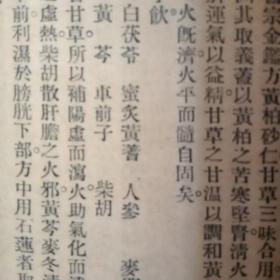 金鑑方黃柏砂仁甘草三味合
其取義蓋以黃柏之苦寒堅腎清火
運氣以益精甘草之甘溫以調和黃
火既濟火平而髓自固矣。
子飲
白茯苓 蜜炙黃蓍 人參 麥
黃芩 車前子 柴胡
甘草所以補陽虛而瀉火助氣化而
之虛熱。柴胡散肝膽之火邪黃芩麥冬清
前利濕於膀胱下部方中用石蓮者取